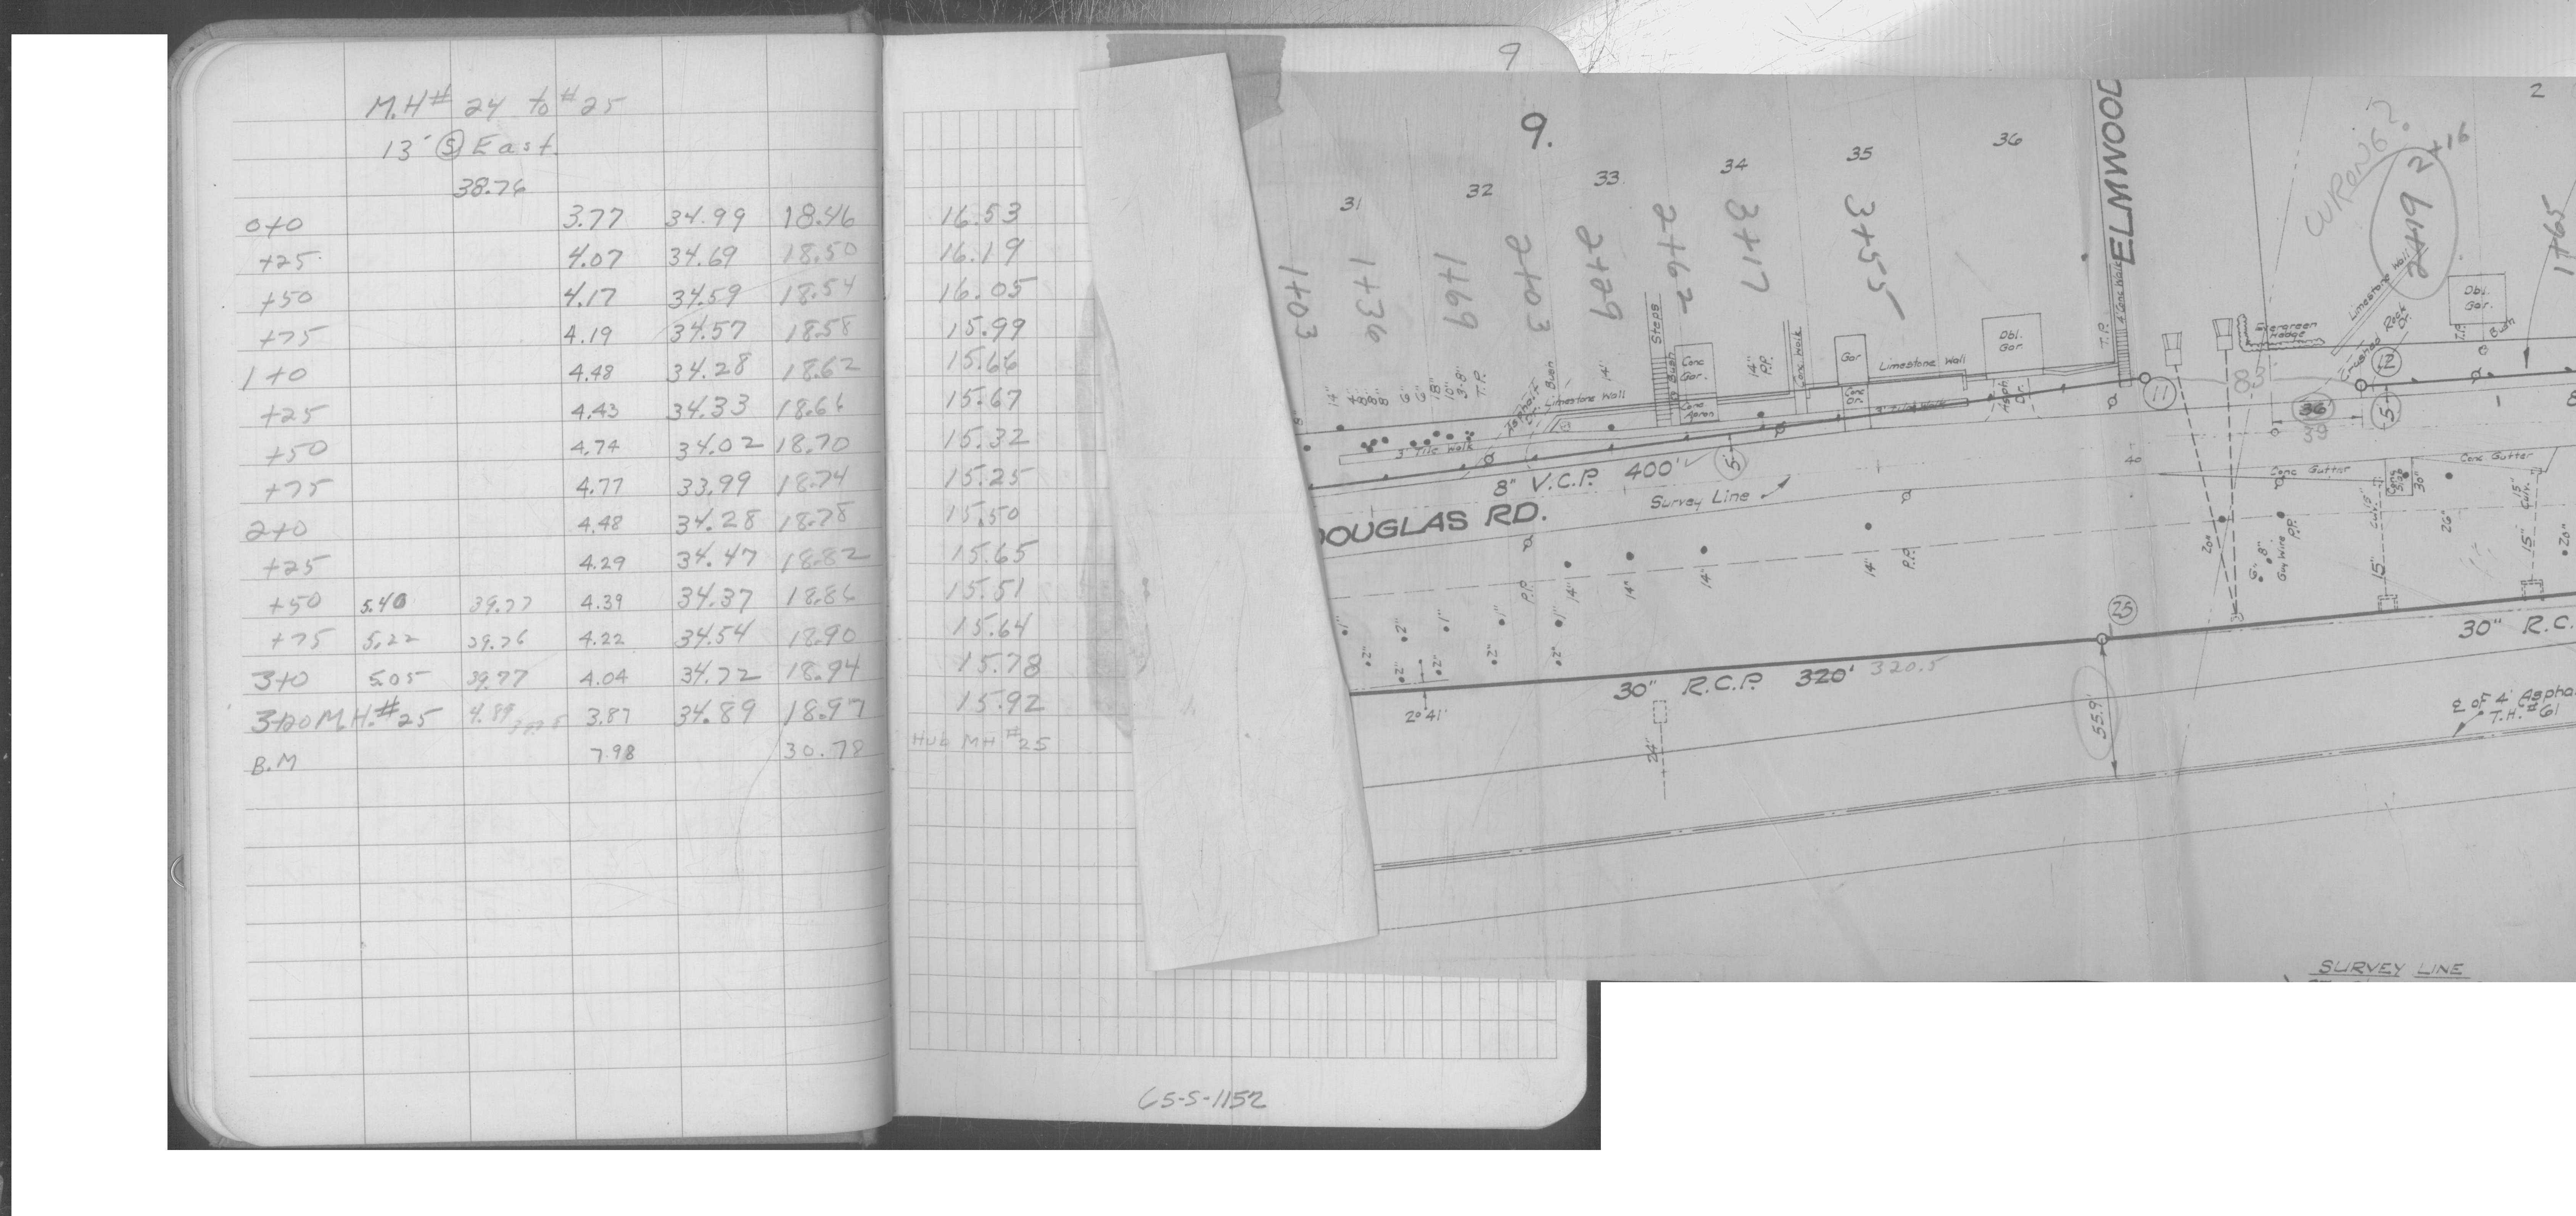 M.H# 24 to #25
13' Ⓢ East
38.76
0+0 3.77 34.99 18.46 16.53
+25 4.07 34.69 18.50 16.19
+50 4.17 34.59 18.54 16.05
+75 4.19 34.57 18.58 15.99
1+0 4.48 34.28 18.62 15.66
+25 4.43 34.33 18.66 15.67
+50 4.74 34.02 18.70 15.32
+75 4.77 33.99 18.74 15.25
2+0 4.48 34.28 18.78 15.50
+25 4.29 34.47 18.82 15.65
+50 5.40 39.77 4.39 34.37 18.86 15.51
+75 5.22 39.76 4.22 34.54 18.90 15.64
3+0 5.05 39.77 4.04 34.72 18.94 15.78
3+20 M.H.#25 4.89 3.87 34.89 18.97 15.92
B.M 7.98 30.78 Hub MH #25
65-S-1152
9
9.
31
32
33
34
35
36
2
1+03
1+36
1+69
2+03
2+29
2+62
3+17
3+55
ELMWOOD
WRONG?
2+19
2+16
1+65
Steps
Bush
Conc Gar.
Conc Apron
14" P.P.
Conc Walk
Gar
Limestone Wall
Dbl. Gar.
Asph Dr.
T.P.
4' Conc Walk
Evergreen Hedge
Limestone Wall
Crushed Rock Dr.
Dbl. Gar.
T.P.
Bush
14"
8"
8"
6"
6"
18"
10"
3-8"
T.P.
Bush
Limestone Wall
14'
3' Tile Walk
11
83
12
36
39
5
5
8" V.C.P. 400'
Survey Line
DOUGLAS RD.
40
Conc Gutter
Conc Slab
30"
Conc Gutter
15" Culv.
15"
26"
15" Culv.
15"
20"
20"
6"
8"
Guy Wire
P.P.
P.P.
14"
14"
14"
14"
P.P.
1"
2"
1"
1"
1"
2"
2"
2"
2"
2"
25
30" R.C.P. 320' 320.5
30" R.C.
2°41'
24"
55.9'
℄ OF 4' Aspha
T.H. #61
SURVEY LINE